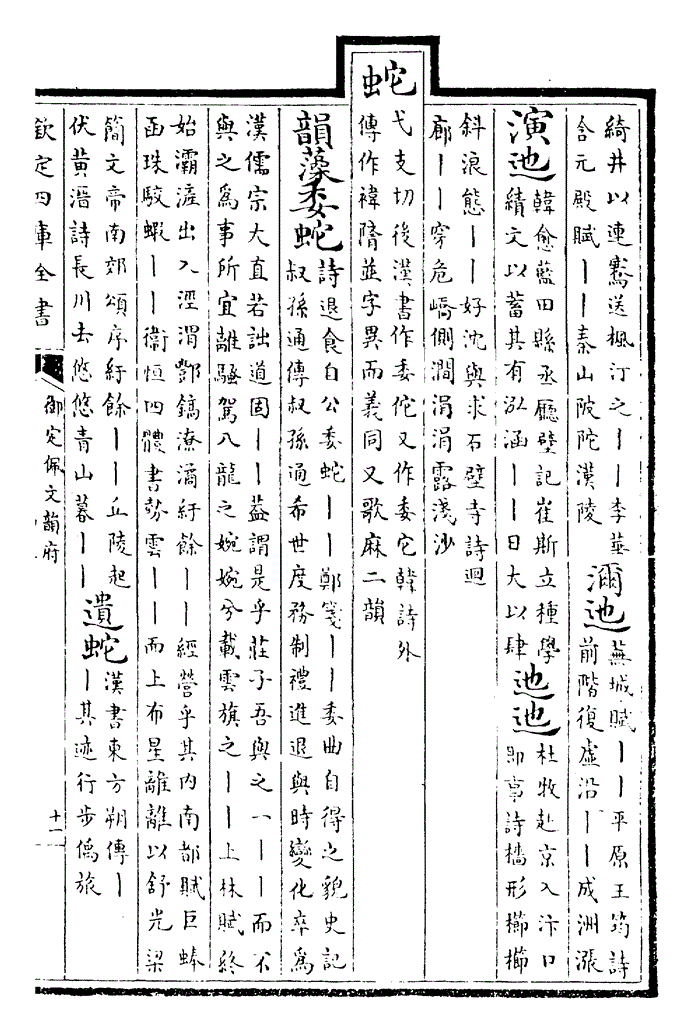 綺井以連騫送楓汀之丨丨李華
含元殿賦丨丨秦山陂陀漢陵
瀰迆
蕪城賦丨丨平原王筠詩
前階復虛沿丨丨成洲漲
演迆
韓愈藍田縣丞廳壁記崔斯立種學
績文以蓄其有泓涵丨丨日大以肆
迆迆
杜牧赴京入汴口
即事詩檣形櫛櫛
斜浪態丨丨好沈與求石壁寺詩迴
廊丨丨穿危嶠側澗涓涓露淺沙
蛇
弋支切後漢書作委佗又作委它韓詩外
傳作褘隋並字異而義同又歌麻二韻
韻藻委蛇
詩退食自公委蛇丨丨鄭箋丨丨委曲自得之貌史記
叔孫通傳叔孫通希世度務制禮進退與時變化卒為
漢儒宗大直若詘道固丨丨葢謂是乎莊子吾與之一丨丨而不
與之為事所宜離騷駕八龍之婉婉兮載雲旗之丨丨上林賦終
始灞滻出入涇渭酆鎬潦潏紆餘丨丨經營乎其内南都賦巨蚌
函珠駮蝦丨丨衞恒四體書勢雲丨丨而上布星離離以舒光梁
簡文帝南郊頌序紆餘丨丨丘陵起
伏黄溍詩長川去悠悠青山暮丨丨
遺蛇
漢書東方朔傳丨
丨其迹行步僞旅
欽定四庫全書
御定佩文韻府
十一